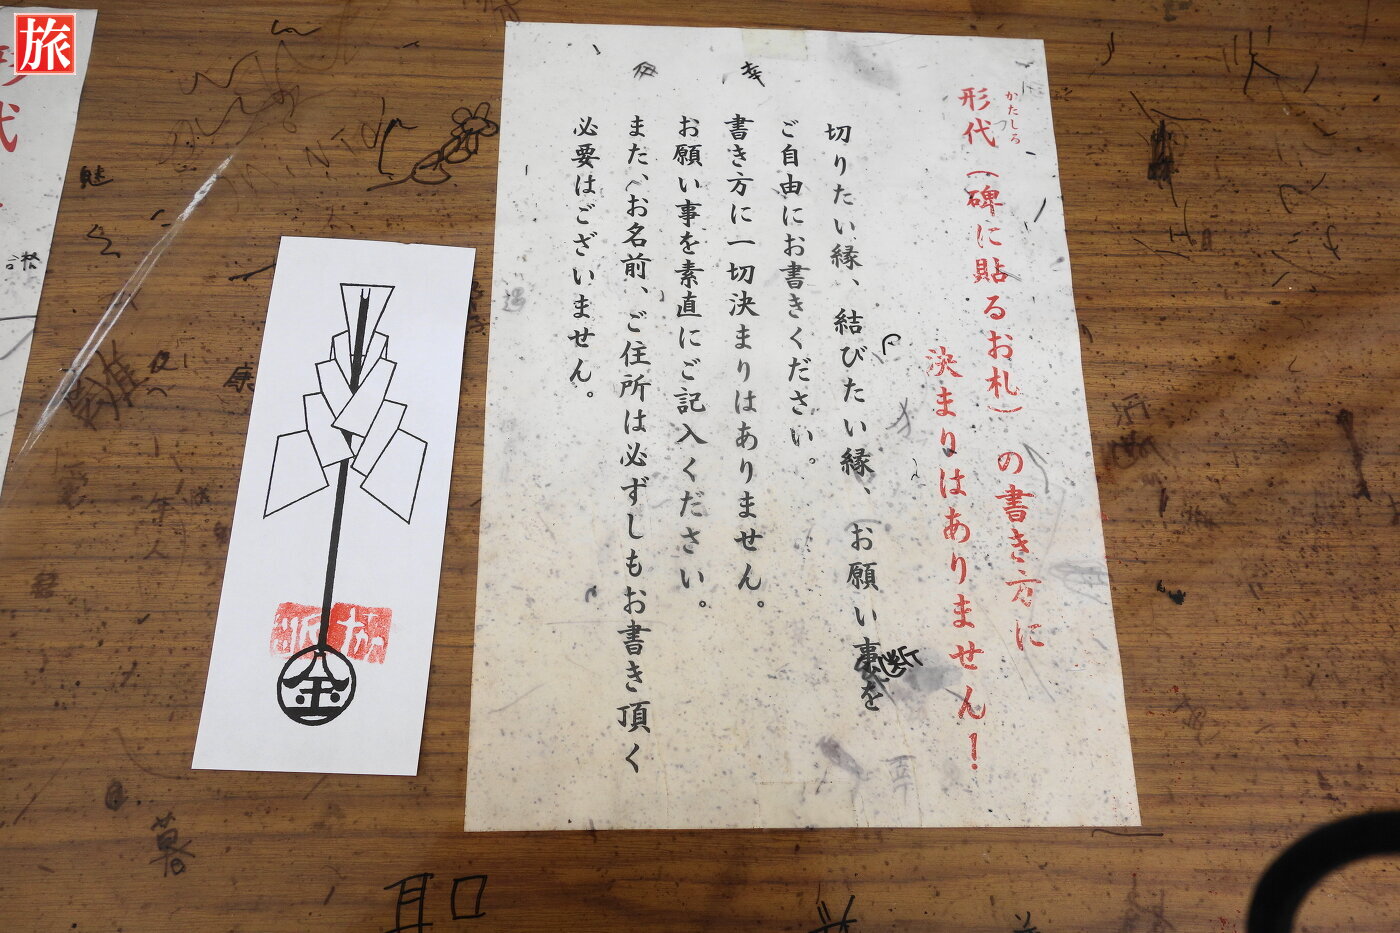 旅
形代（碑に貼るお札）の書き方に
かたしろ
決まりはありません！
切りたい縁、結びたい縁、お願い事を
ご自由にお書きください。
書き方に一切決まりはありません。
お願い事を素直にご記入ください。
また、お名前、ご住所は必ずしもお書き頂く
必要はございません。
幸
形代
魅
康
金
暮